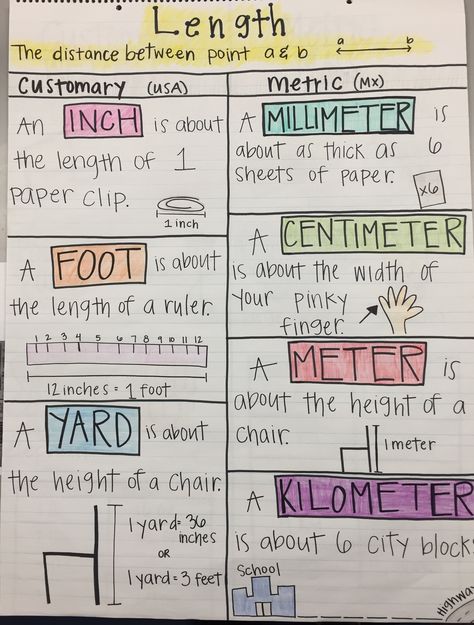 Length
The distance between point a & b
a b
Customary (USA)
An INCH is about
the length of 1
paper clip.
1 inch
A FOOT is about
the length of a ruler.
1 2 3 4 5 6 7 8 9 10 11 12
12 inches = 1 foot
A YARD is about
the height of a chair.
1 yard = 36
inches
OR
1 yard = 3 feet
Metric (MX)
A MILLIMETER is
about as thick as 6
sheets of paper.
x6
A CENTIMETER
is about the width of
your pinky
finger.
A METER is
about the height of a
chair.
1 meter
A KILOMETER
is about 6 city block
School
Highway